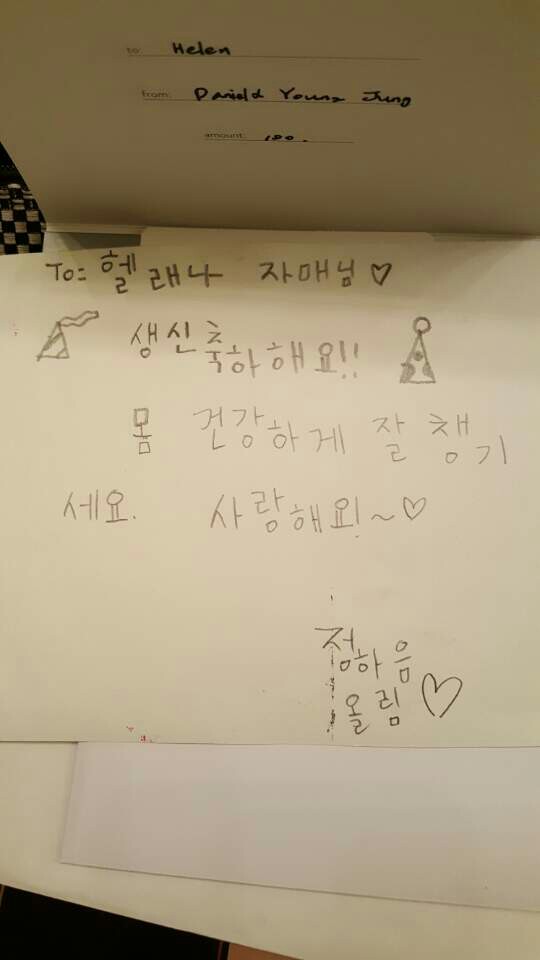 to: Helen
from: Daniel & Young Jung
amount: 100.
To: 헬래나 자매님♡
생신축하해요!!
몸 건강하게 잘 챙기
세요. 사랑해요!~♡
정하음
올림♡